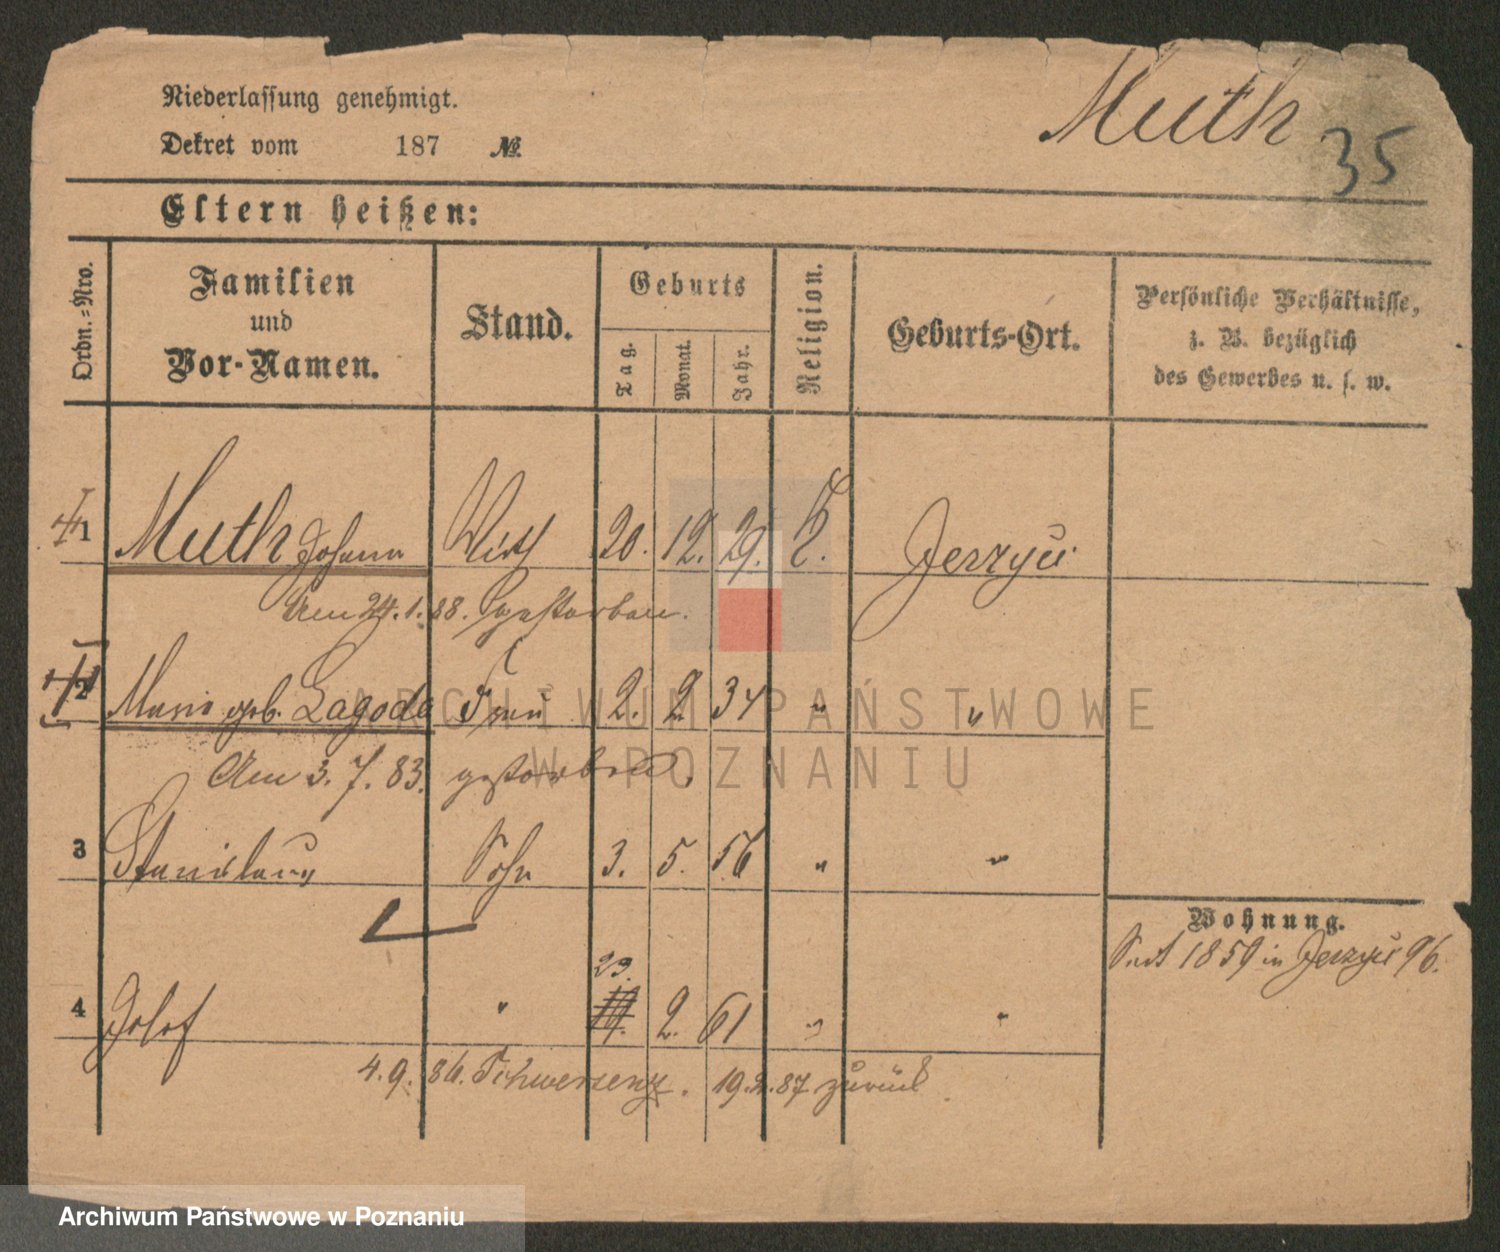 Niederlassung genehmigt.
Muth 35
Dekret vom 187 №
Eltern heißen:
Ordn.=Nro.
Familien
und
Vor-Namen.
Stand.
Geburts
Tag.
Monat.
Jahr.
Religion.
Geburts-Ort.
Persönliche Verhältnisse,
z. B. bezüglich
des Gewerbes u. s. w.
1 Muth Johann Wirth 20. 12. 29. k. Jerzyce
Am 24. 1. 88. gestorben.
2 Marie geb. Lagoda Frau 2. 2. 34 " "
Am 3. 7. 83. gestorben.
3 Stanislaus Sohn 3. 5. 56 " "
Wohnung.
Seit 1859 in Jerzyce 96.
23.
4 Josef " 2. 61 " "
4. 9. 86. Schwersenz. 19. 2. 87 zurück.
ARCHIWUM PAŃSTWOWE
W POZNANIU
Archiwum Państwowe w Poznaniu